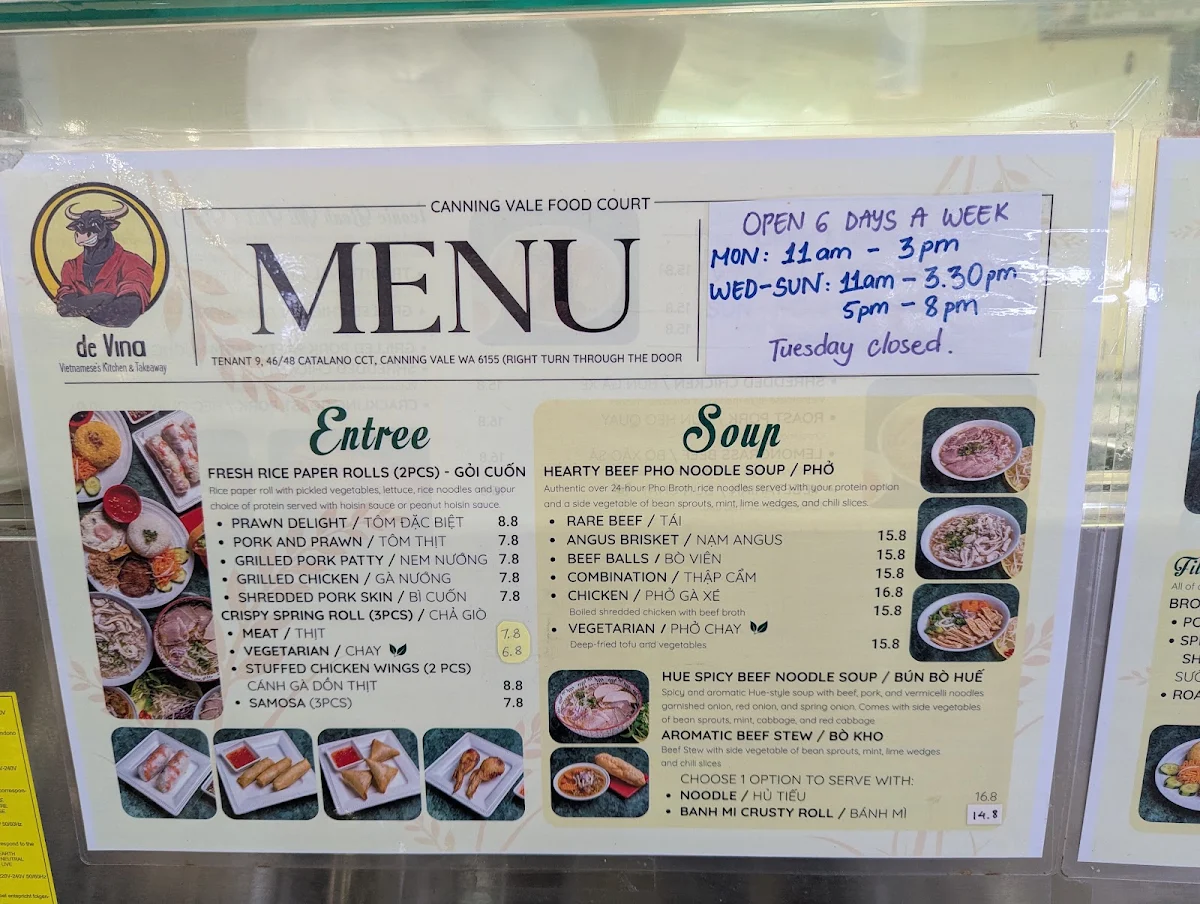 CANNING VALE FOOD COURT
MENU
TENANT 9, 46/48 CATALANO CCT, CANNING VALE WA 6155 (RIGHT TURN THROUGH THE DOOR
de Vina
Vietnamese's Kitchen & Takeaway
OPEN 6 DAYS A WEEK
MON: 11am - 3pm
WED-SUN: 11am - 3.30pm
5pm - 8pm
Tuesday closed.
Entree
FRESH RICE PAPER ROLLS (2PCS) - GỎI CUỐN
Rice paper roll with pickled vegetables, lettuce, rice noodles and your
choice of protein served with hoisin sauce or peanut hoisin sauce.
• PRAWN DELIGHT / TÔM ĐẶC BIỆT 8.8
• PORK AND PRAWN / TÔM THỊT 7.8
• GRILLED PORK PATTY / NEM NƯỚNG 7.8
• GRILLED CHICKEN / GÀ NƯỚNG 7.8
• SHREDDED PORK SKIN / BÌ CUỐN 7.8
CRISPY SPRING ROLL (3PCS) / CHẢ GIÒ
• MEAT / THỊT 7.8
• VEGETARIAN / CHAY 6.8
• STUFFED CHICKEN WINGS (2 PCS)
CÁNH GÀ DỒN THỊT 8.8
• SAMOSA (3PCS) 7.8
Soup
HEARTY BEEF PHO NOODLE SOUP / PHỞ
Authentic over 24-hour Pho Broth, rice noodles served with your protein option
and a side vegetable of bean sprouts, mint, lime wedges, and chili slices.
• RARE BEEF / TÁI 15.8
• ANGUS BRISKET / NẠM ANGUS 15.8
• BEEF BALLS / BÒ VIÊN 15.8
• COMBINATION / THẬP CẨM 16.8
• CHICKEN / PHỞ GÀ XÉ 15.8
Boiled shredded chicken with beef broth
• VEGETARIAN / PHỞ CHAY 15.8
Deep-fried tofu and vegetables
HUE SPICY BEEF NOODLE SOUP / BÚN BÒ HUẾ
Spicy and aromatic Hue-style soup with beef, pork, and vermicelli noodles
garnished onion, red onion, and spring onion. Comes with side vegetables
of bean sprouts, mint, cabbage, and red cabbage
AROMATIC BEEF STEW / BÒ KHO
Beef Stew with side vegetable of bean sprouts, mint, lime wedges
and chili slices
CHOOSE 1 OPTION TO SERVE WITH:
• NOODLE / HỦ TIẾU 16.8
• BANH MI CRUSTY ROLL / BÁNH MÌ 14.8
All of